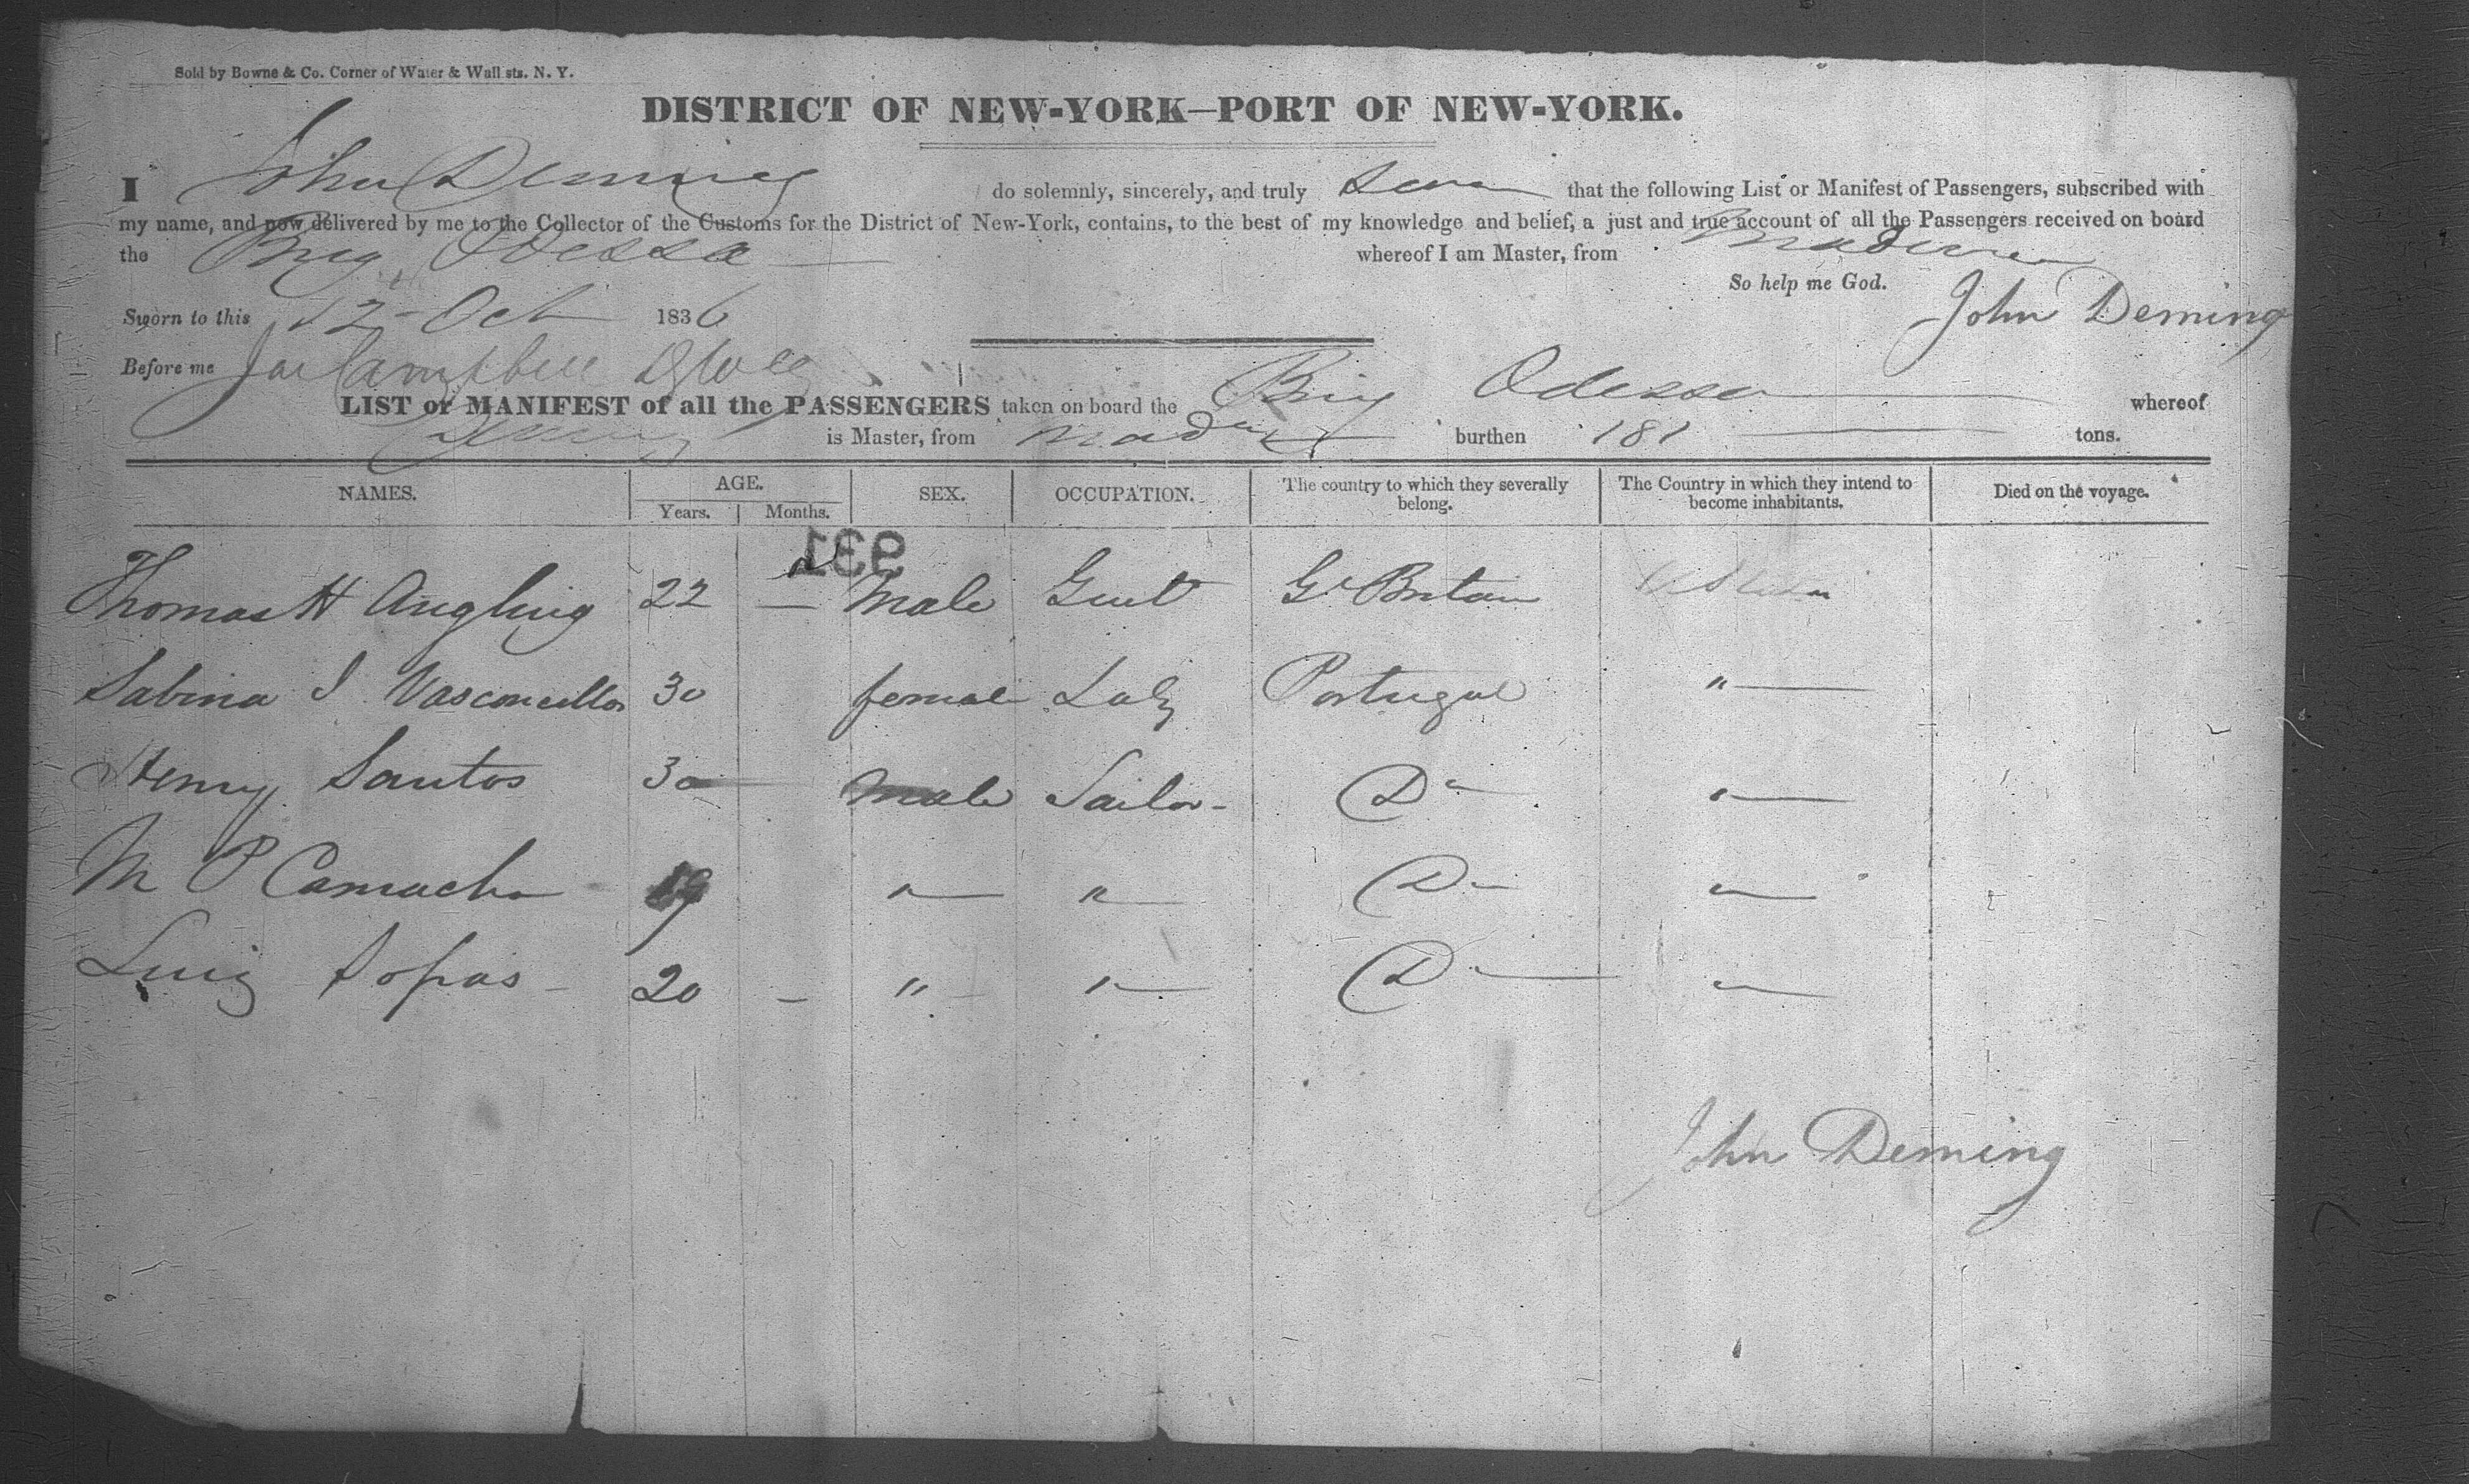 Sold by Bowne & Co. Corner of Water & Wall sts. N. Y.
DISTRICT OF NEW-YORK—PORT OF NEW-YORK.
I John Deming do solemnly, sincerely, and truly swear that the following List or Manifest of Passengers, subscribed with
my name, and now delivered by me to the Collector of the Customs for the District of New-York, contains, to the best of my knowledge and belief, a just and true account of all the Passengers received on board
the Brig Odessa whereof I am Master, from Madeira
So help me God.
Sworn to this 12 Oct 1836 John Deming
Before me Jas Campbell
LIST or MANIFEST of all the PASSENGERS taken on board the Brig Odessa whereof
Deming is Master, from Madeira burthen 181 tons.
NAMES. AGE. Years. Months. SEX. OCCUPATION. The country to which they severally belong. The Country in which they intend to become inhabitants. Died on the voyage.
931
Thomas H Angling 22 — Male Gent Gr Britain
Sabina J Vasconcellos 30 female Lady Portugal "
Henry Santos 30 Male Sailor Do "
M P Camacho 19 " " Do "
Luiz 20 — " " Do "
John Deming